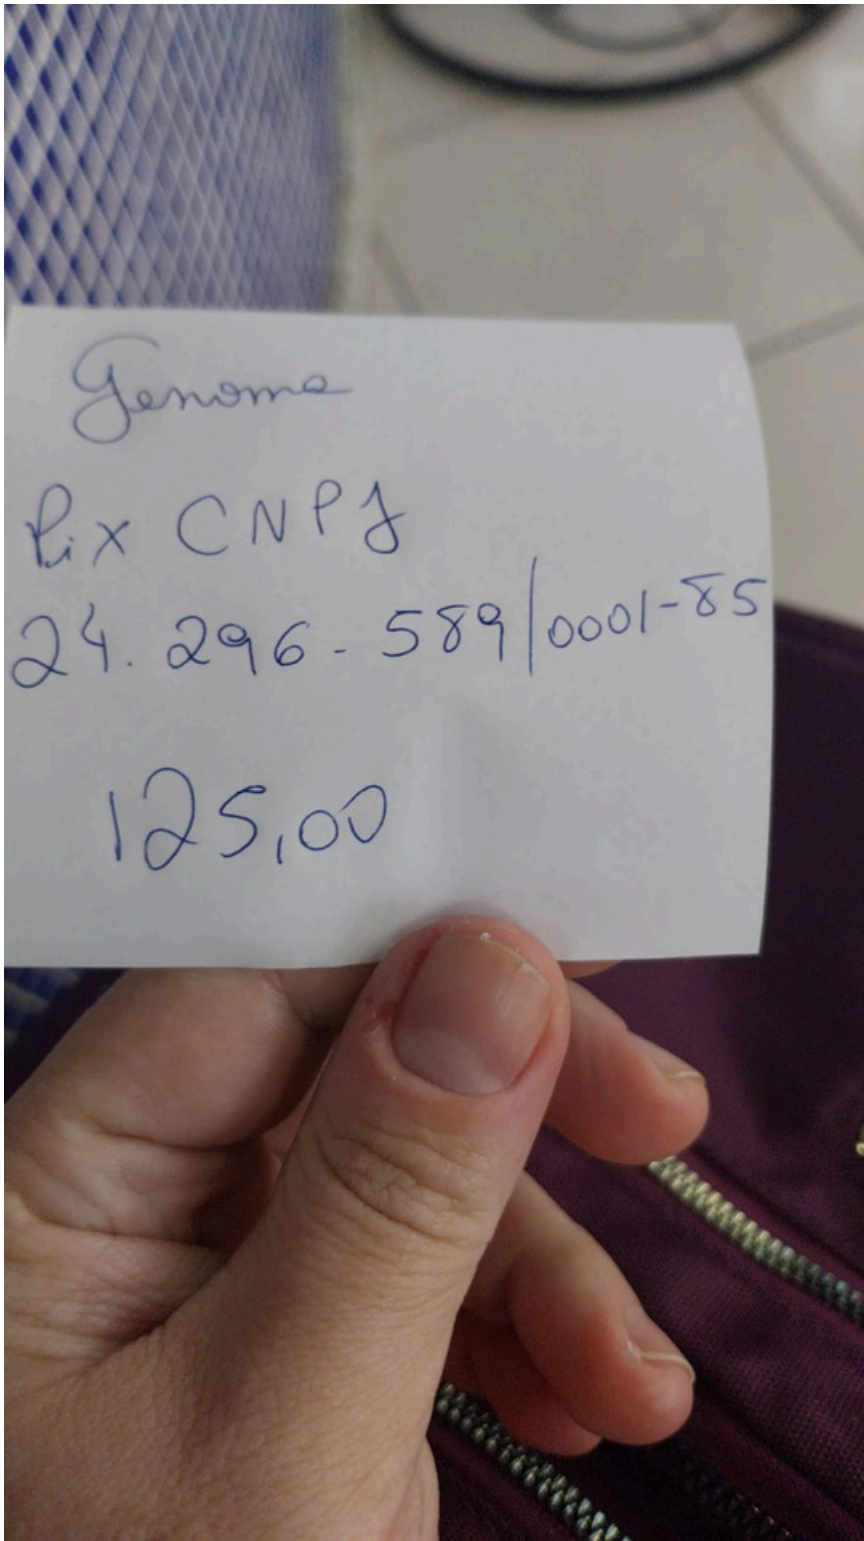 Genoma
Pix CNPJ
24.296-589/0001-85
125,00